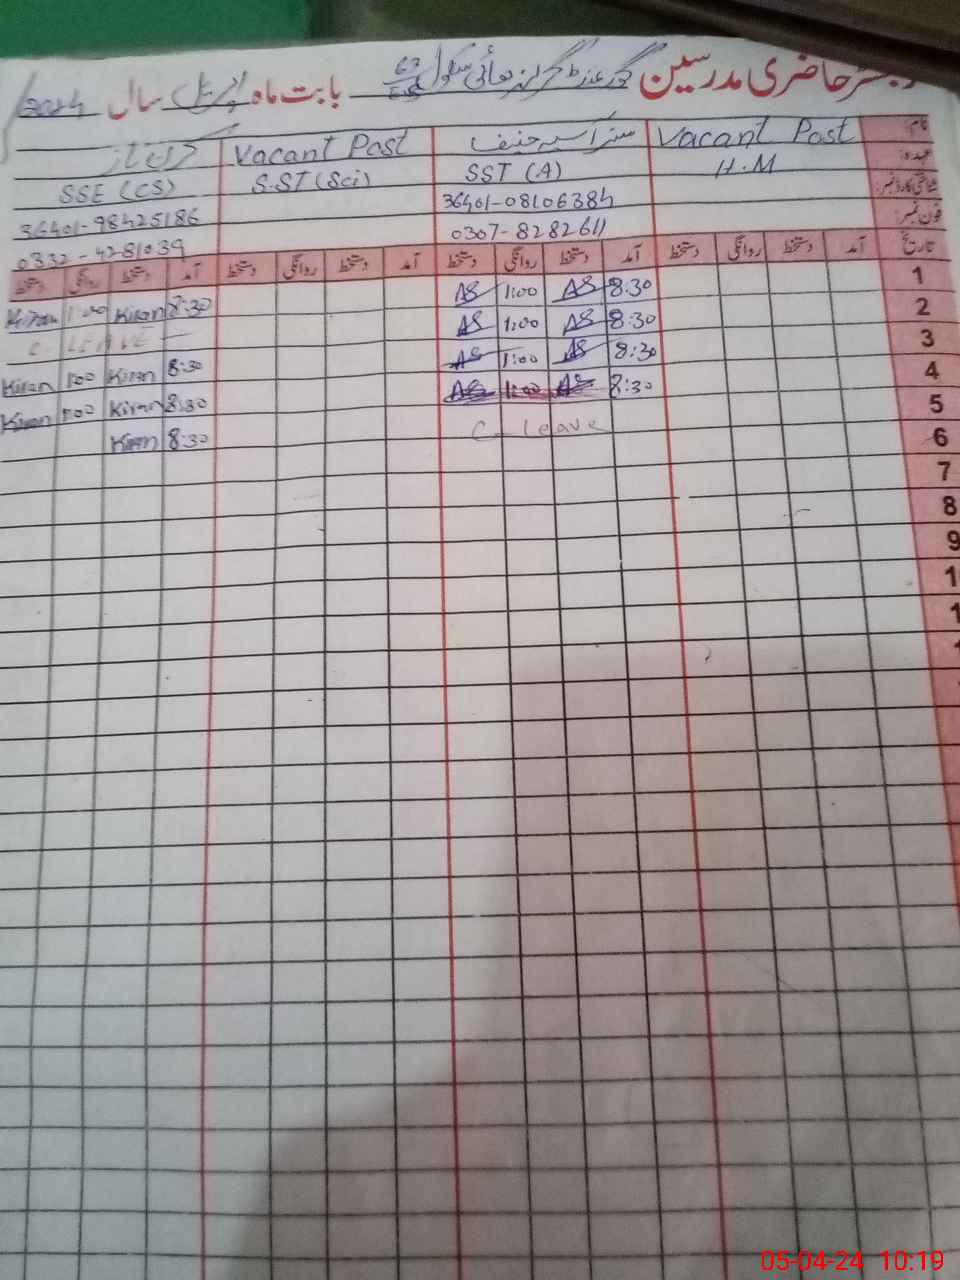 رجسٹر حاضری مدرسین گورنمنٹ گرلز ھائی سکول 63 بابت ماہ اپریل سال 2024
نام: Vacant Post Vacant Post کرن ناز
عہدہ: H.M SST (A) S.ST (Sci) SSE (CS)
شناختی کارڈ نمبر: 36401-08106384 36401-98425186
فون نمبر: 0307-8282611 0332-4281039
تاریخ آمد دستخط روانگی دستخط آمد دستخط روانگی دستخط آمد دستخط روانگی دستخط آمد دستخط روانگی دستخط
1 8:30 AS 1:00 AS 8:30 Kiran 1:00 Kiran
2 8:30 AS 1:00 AS C. LEAVE
3 8:30 AS 1:00 AS 8:30 Kiran 1:00 Kiran
4 8:30 AS 1:00 AS 8:30 Kiran 1:00 Kiran
5 C. leave 8:30 Kiran
6
7
8
9
1
1
1
05-04-24 10:19